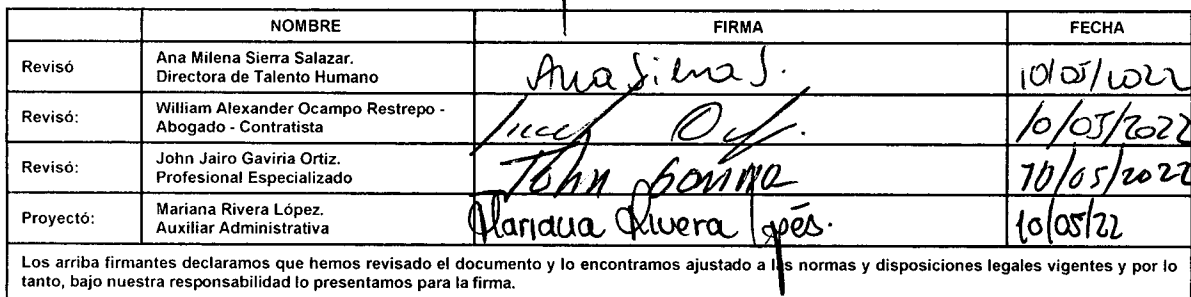 NOMBRE FIRMA FECHA
Revisó Ana Milena Sierra Salazar.
Directora de Talento Humano Ana Sierra S. 10/05/2022
Revisó: William Alexander Ocampo Restrepo -
Abogado - Contratista 10/05/2022
Revisó: John Jairo Gaviria Ortiz.
Profesional Especializado John Gaviria 10/05/2022
Proyectó: Mariana Rivera López.
Auxiliar Administrativa Mariana Rivera López. 10/05/22
Los arriba firmantes declaramos que hemos revisado el documento y lo encontramos ajustado a las normas y disposiciones legales vigentes y por lo
tanto, bajo nuestra responsabilidad lo presentamos para la firma.